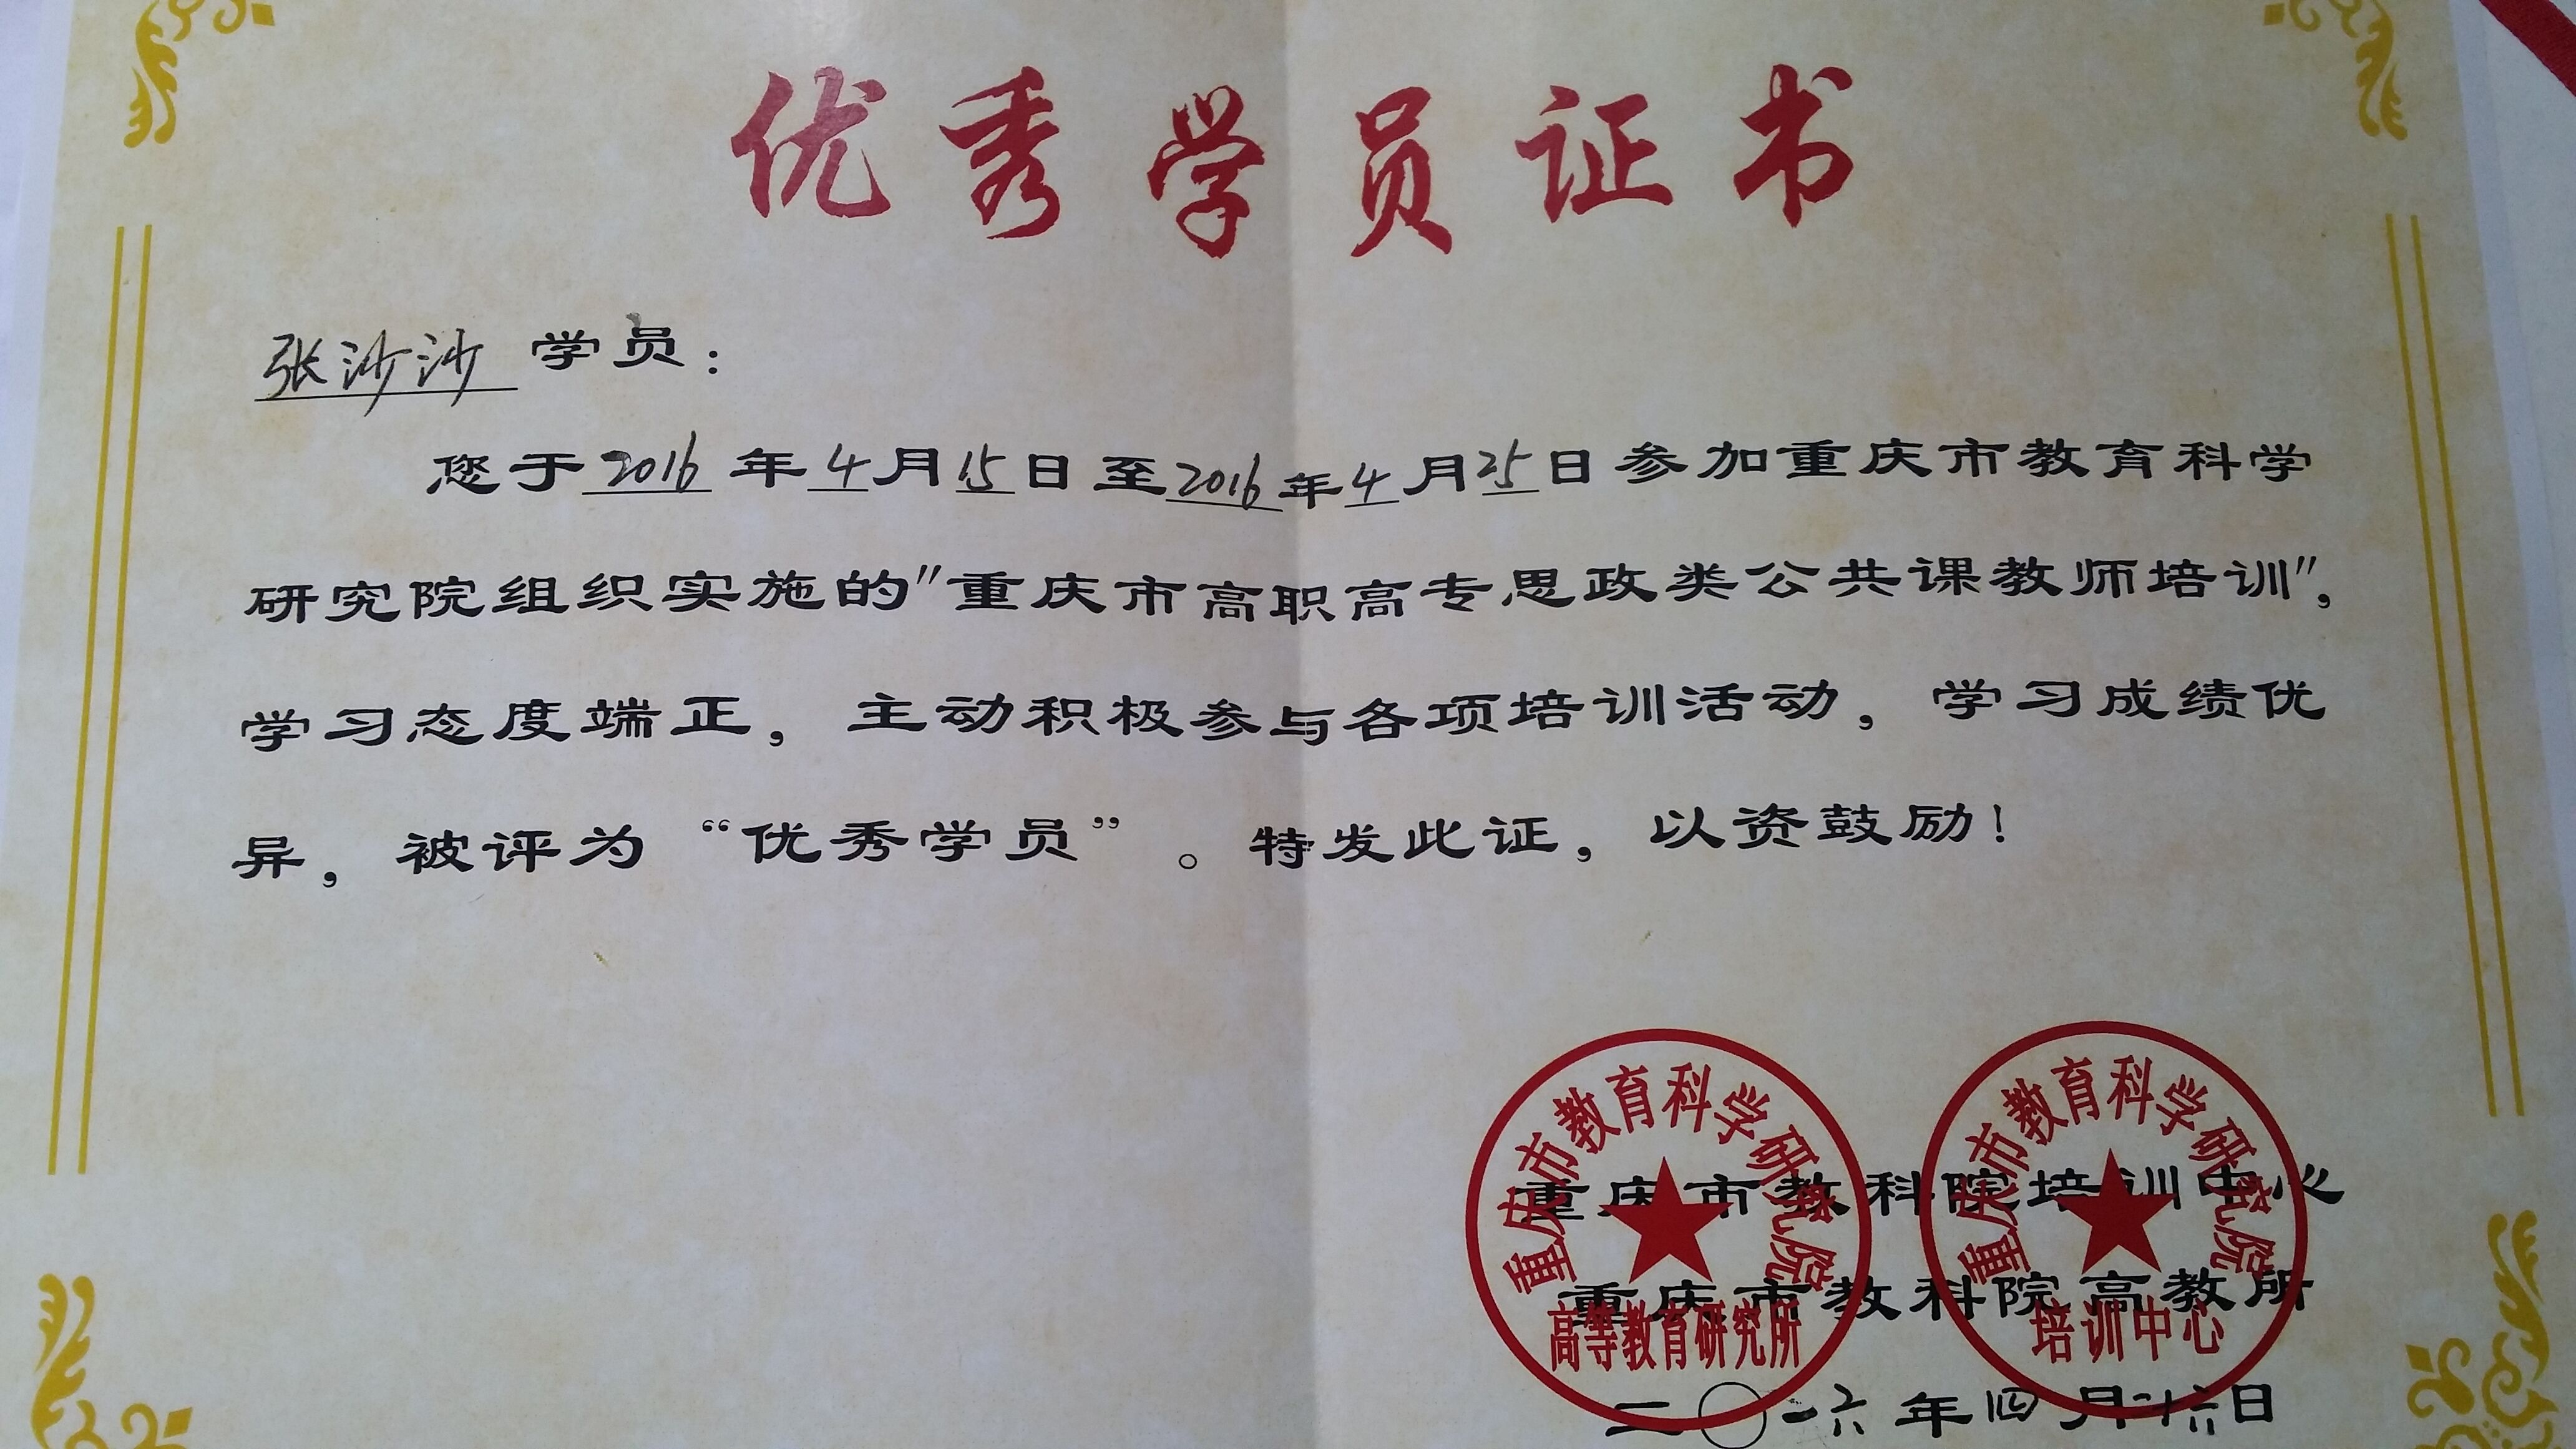 优秀学员证书
张沙沙 学员：
您于2016年4月15日至2016年4月25日参加重庆市教育科学
研究院组织实施的"重庆市高职高专思政类公共课教师培训"，
学习态度端正，主动积极参与各项培训活动，学习成绩优
异，被评为“优秀学员”。特发此证，以资鼓励！
重庆市教科院培训中心
重庆市教科院高教所
二〇一六年四月廿六日
重庆市教育科学研究院
高等教育研究所
重庆市教育科学研究院
培训中心